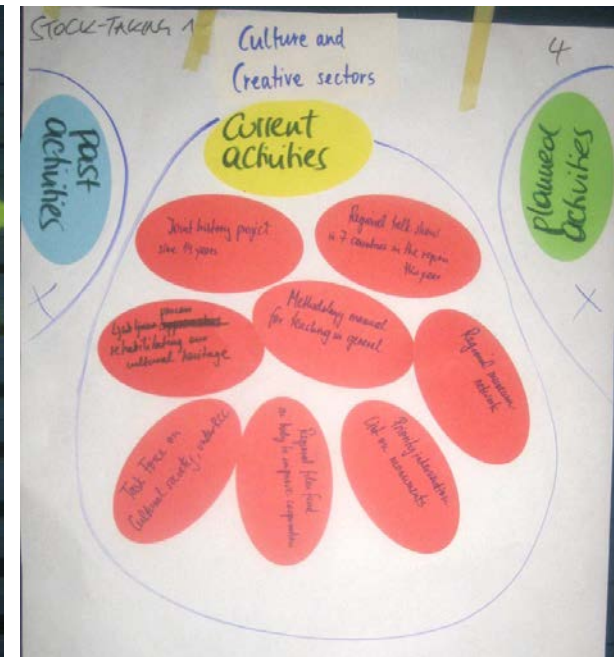 STOCK-TAKING 1
4
Culture and
Creative sectors
past
activities
Current
activities
planned
activities
Joint history project
since 14 years
Regional talk show
in 7 countries in the region
this year
process
rehabilitating our
cultural heritage
Methodology manual
for teaching in general
Regional museum
network
Task Force on
Cultural society, under RCC
Regional film fund
or body to improve cooperation
Priority intervention
list on monuments